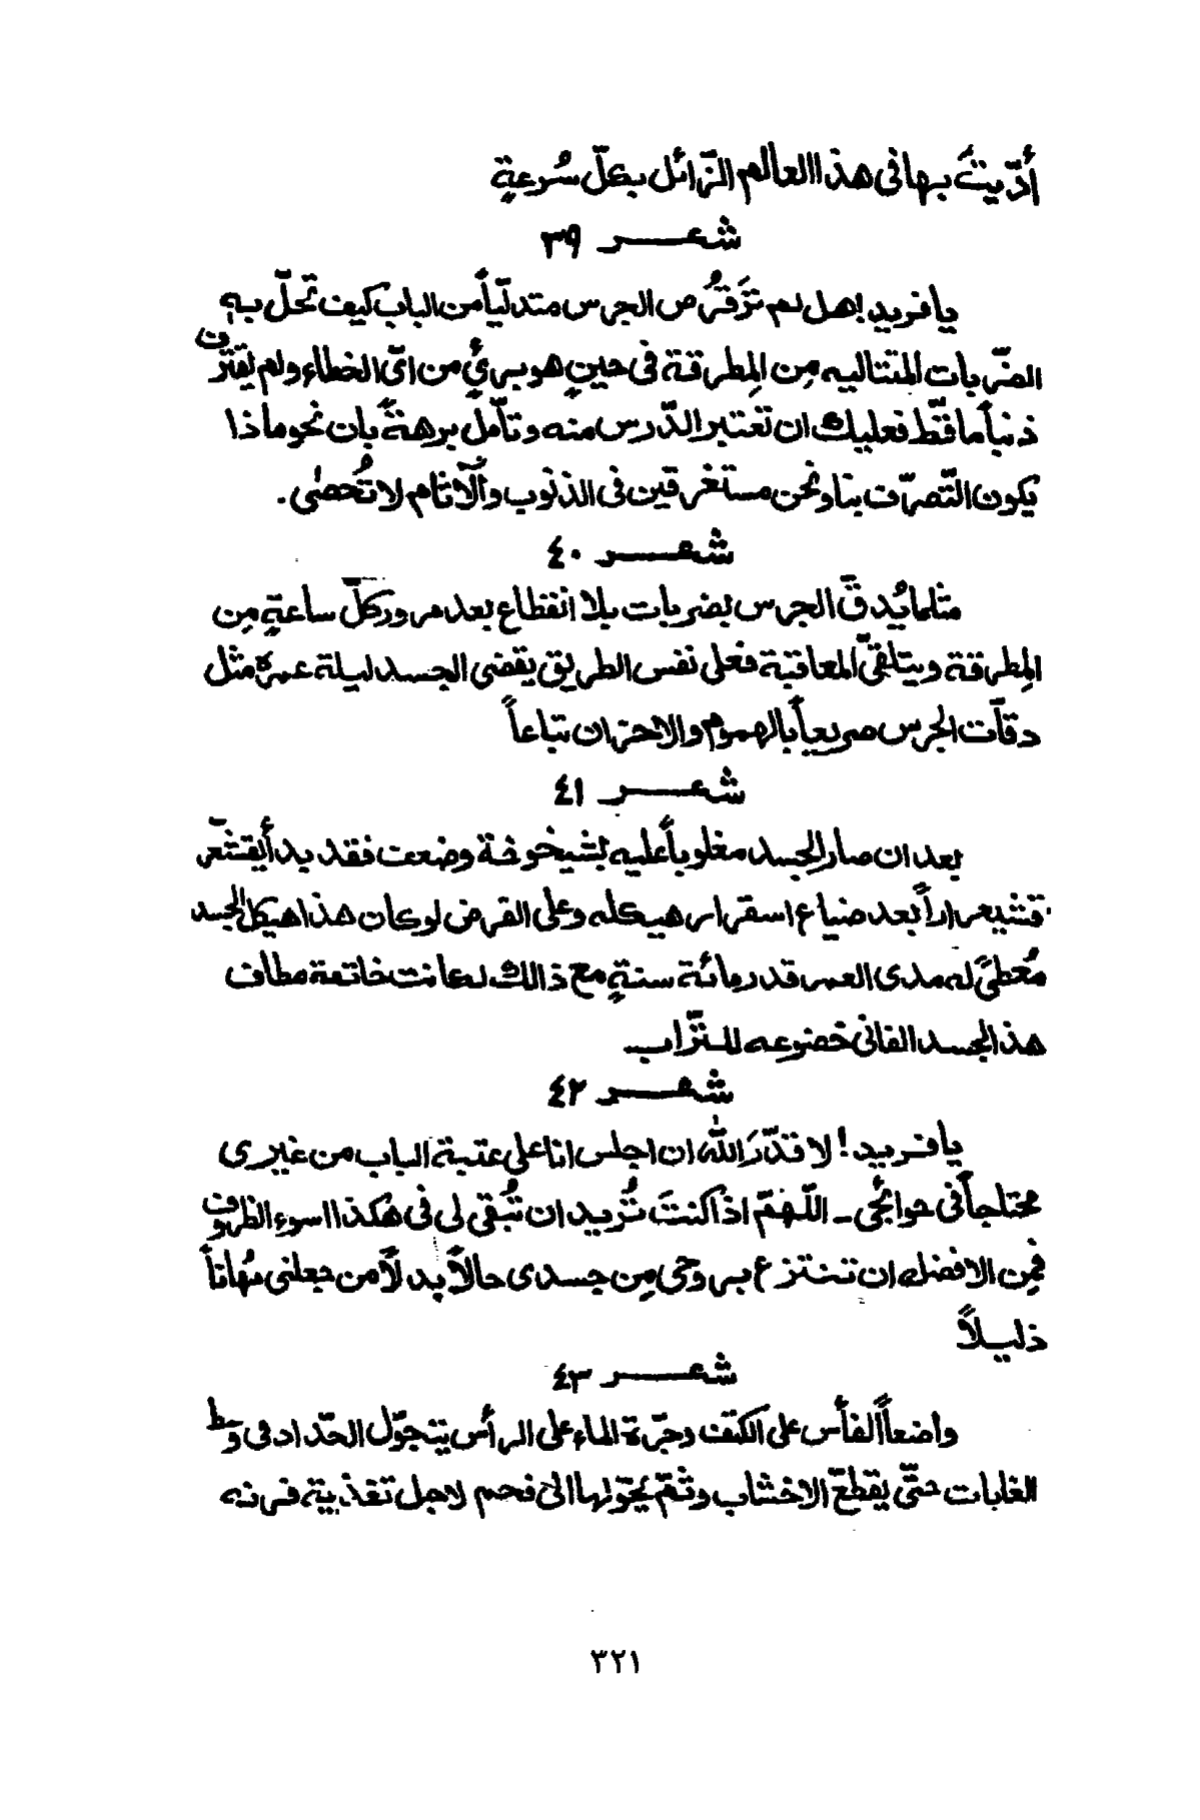 أدّيتَ بها فى هذا العالم الزّائل بكلّ سُرعةٍ
شعر ٣٩
يا فريد! هل لم ترَ قُرُص الجرس متدلّياً من الباب كيف تحلّ به
الضّربات المتتاليه مِن المِطرقة فى حينٍ هو برئٌ من اىّ الخطاء ولم يقترف
ذنباً ما قطّ فعليك ان تعتبر الدّرس منه وتأمّل برهةً بان نحو ماذا
يكون التّصرّف بنا ونحن مستغرقين فى الذنوب وألآثام لا تُحصٰى .
شعر ٤٠
مثلما يُدقّ الجرس بضربات بلا انقطاع بعد مرور كلّ ساعةٍ مِن
المِطرقة ويتلقىّ المعاقبة فعلى نفس الطريق يقضى الجسد ليلة عمره مثل
دقّات الجرس صريعاً بالهموم والاحزان تباعاً
شعر ٤١
بعد ان صار الجسد مغلوباً عليه بشيخوخة وضعف فقد بدأ يقشعّر
قشيعراراً بعد ضياع اسقرار هيكله وعلى الفرض لو كان هذا هيكل الجسد
مُعطىً له مدى العمر قدر مائة سنةٍ مع ذالك لكانت خاتمة مطاف
هذا الجسد الفانى خضوعه للتّراب
شعر ٤٢
يا فريد! لا قدّرَ اللّٰه ان اجلس انا على عتبة الباب من غيرى
محتاجاً فى حوائجى ـ اللّهمّ اذا كنتَ تُريد ان تُبقى لى فى هكذا اسوء الظروف
فمِن الافضل ان تنتزع بروحى مِن جسدى حالاً بدلاً من جعلنى مُهاناً
ذليلاً
شعر ٤٣
واضعاً الفأس على الكتف وجرّة الماء على الرأس يتجوّل الحدّاد فى وسط
الغابات حتّى يقطعّ الاخشاب وثمّ يحوّلها الى فحم لاجل تغذية فرنه
٣٢١